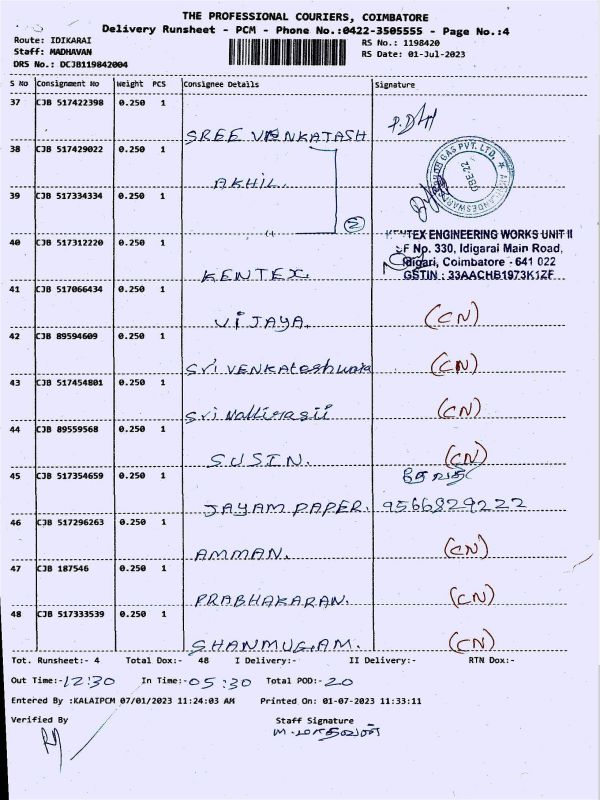 THE PROFESSIONAL COURIERS, COIMBATORE
Delivery Runsheet - PCM - Phone No.:0422-3505555 - Page No.:4
Route: IDIKARAI
RS No.: 1198420
Staff: MADHAVAN
RS Date: 01-Jul-2023
DRS No.: DCJB119842004
S No Consignment No Weight PCS Consignee Details Signature
37 CJB 517422398 0.250 1
SREE VENKATASH
38 CJB 517429022 0.250 1
AKHIL.
GAS PVT. LTD.
GBE-22
39 CJB 517334334 0.250 1
2
40 CJB 517312220 0.250 1
KENTEX
KENTEX ENGINEERING WORKS UNIT II
SF No. 330, Idigarai Main Road,
Idigari, Coimbatore - 641 022
GSTIN : 33AACHB1973K1ZF
41 CJB 517066434 0.250 1
VIJAYA. (CN)
42 CJB 89594609 0.250 1
Sri VENKAteshwara (CN)
43 CJB 517454801 0.250 1
Sri (CN)
44 CJB 89559568 0.250 1
SUSIN. (CN)
45 CJB 517354659 0.250 1
JAYAM PAPER. 9566829222
46 CJB 517296263 0.250 1
AMMAN. (CN)
47 CJB 187546 0.250 1
PRABHAKARAN. (CN)
48 CJB 517333539 0.250 1
SHANMUGAM. (CN)
Tot. Runsheet:- 4 Total Dox:- 48 I Delivery:- II Delivery:- RTN Dox:-
Out Time:-12:30 In Time:-05:30 Total POD:-20
Entered By :KALAIPCM 07/01/2023 11:24:03 AM Printed On: 01-07-2023 11:33:11
Verified By Staff Signature
ம. மாதவன்